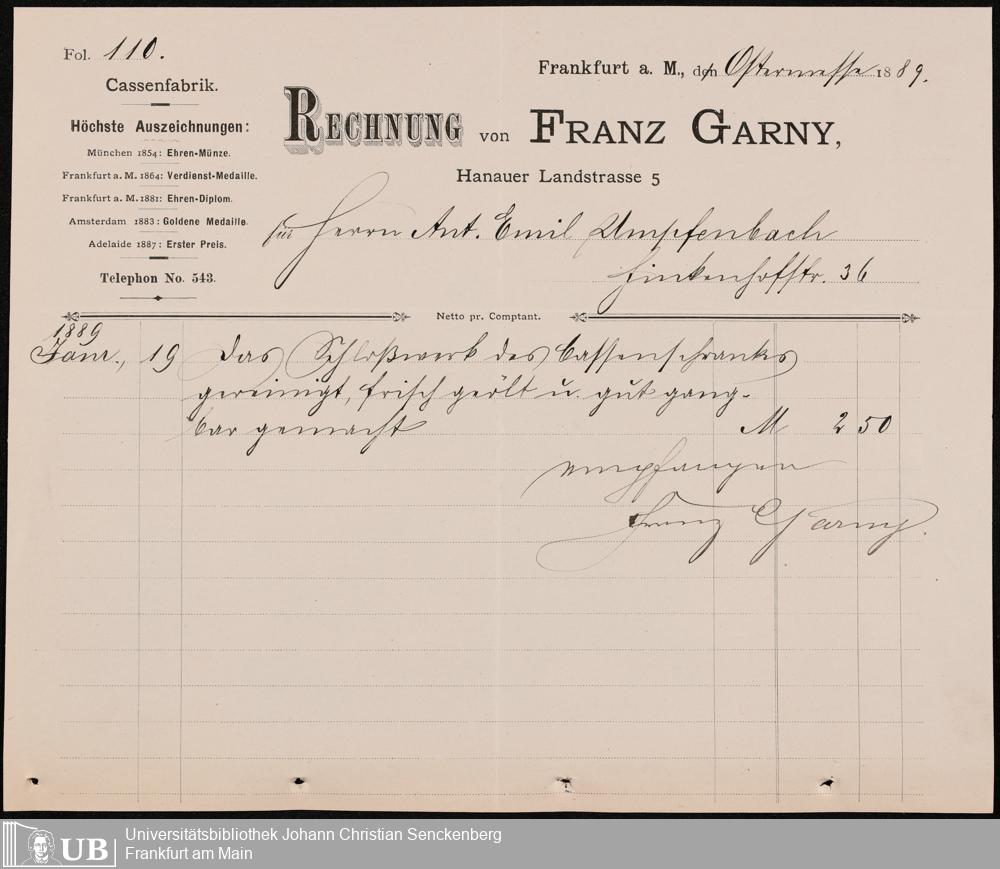 Fol. 110.
Cassenfabrik.
Höchste Auszeichnungen:
München 1854: Ehren-Münze.
Frankfurt a. M. 1864: Verdienst-Medaille.
Frankfurt a. M. 1881: Ehren-Diplom.
Amsterdam 1883: Goldene Medaille.
Adelaide 1887: Erster Preis.
Telephon No. 543.
Frankfurt a. M., den Ostermesse 1889.
RECHNUNG von FRANZ GARNY,
Hanauer Landstrasse 5
für Herrn Ant. Emil Umpfenbach
Finkenhofstr. 36
Netto pr. Comptant.
1889
Janr., 19 Das Schloßwerk des Cassenschrankes
gereinigt, frisch geölt u. gut gang-
bar gemacht M 2 50
empfangen
Franz Garny.
UB
Universitätsbibliothek Johann Christian Senckenberg
Frankfurt am Main